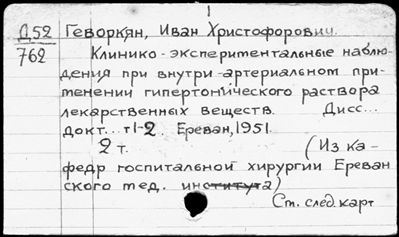 Д52 Геворкян, Иван Христофорович.
762 Клинико-экспериментальные наблю-
дения при внутри-артериальном при-
менении гипертонического раствора
лекарственных веществ. Дисс...
докт... т1-2. Ереван, 1951.
2 т. (Из ка-
федр госпитальной хирургии Ереван
ского мед. института)
См. след карт